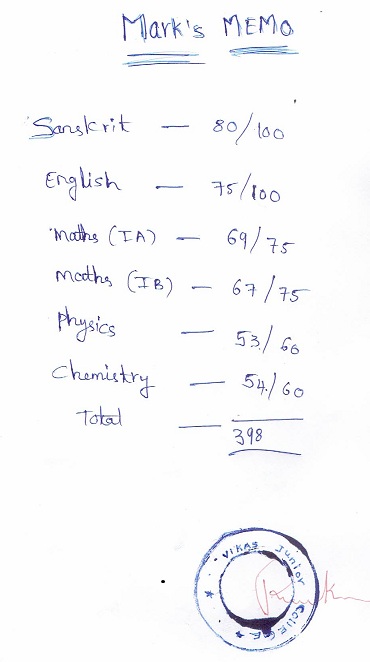 Mark's MEMO
Sanskrit — 80/100
English — 75/100
Maths (IA) — 69/75
Maths (IB) — 67/75
Physics — 53/60
Chemistry — 54/60
Total — 398
VIKAS Junior COLLEGE